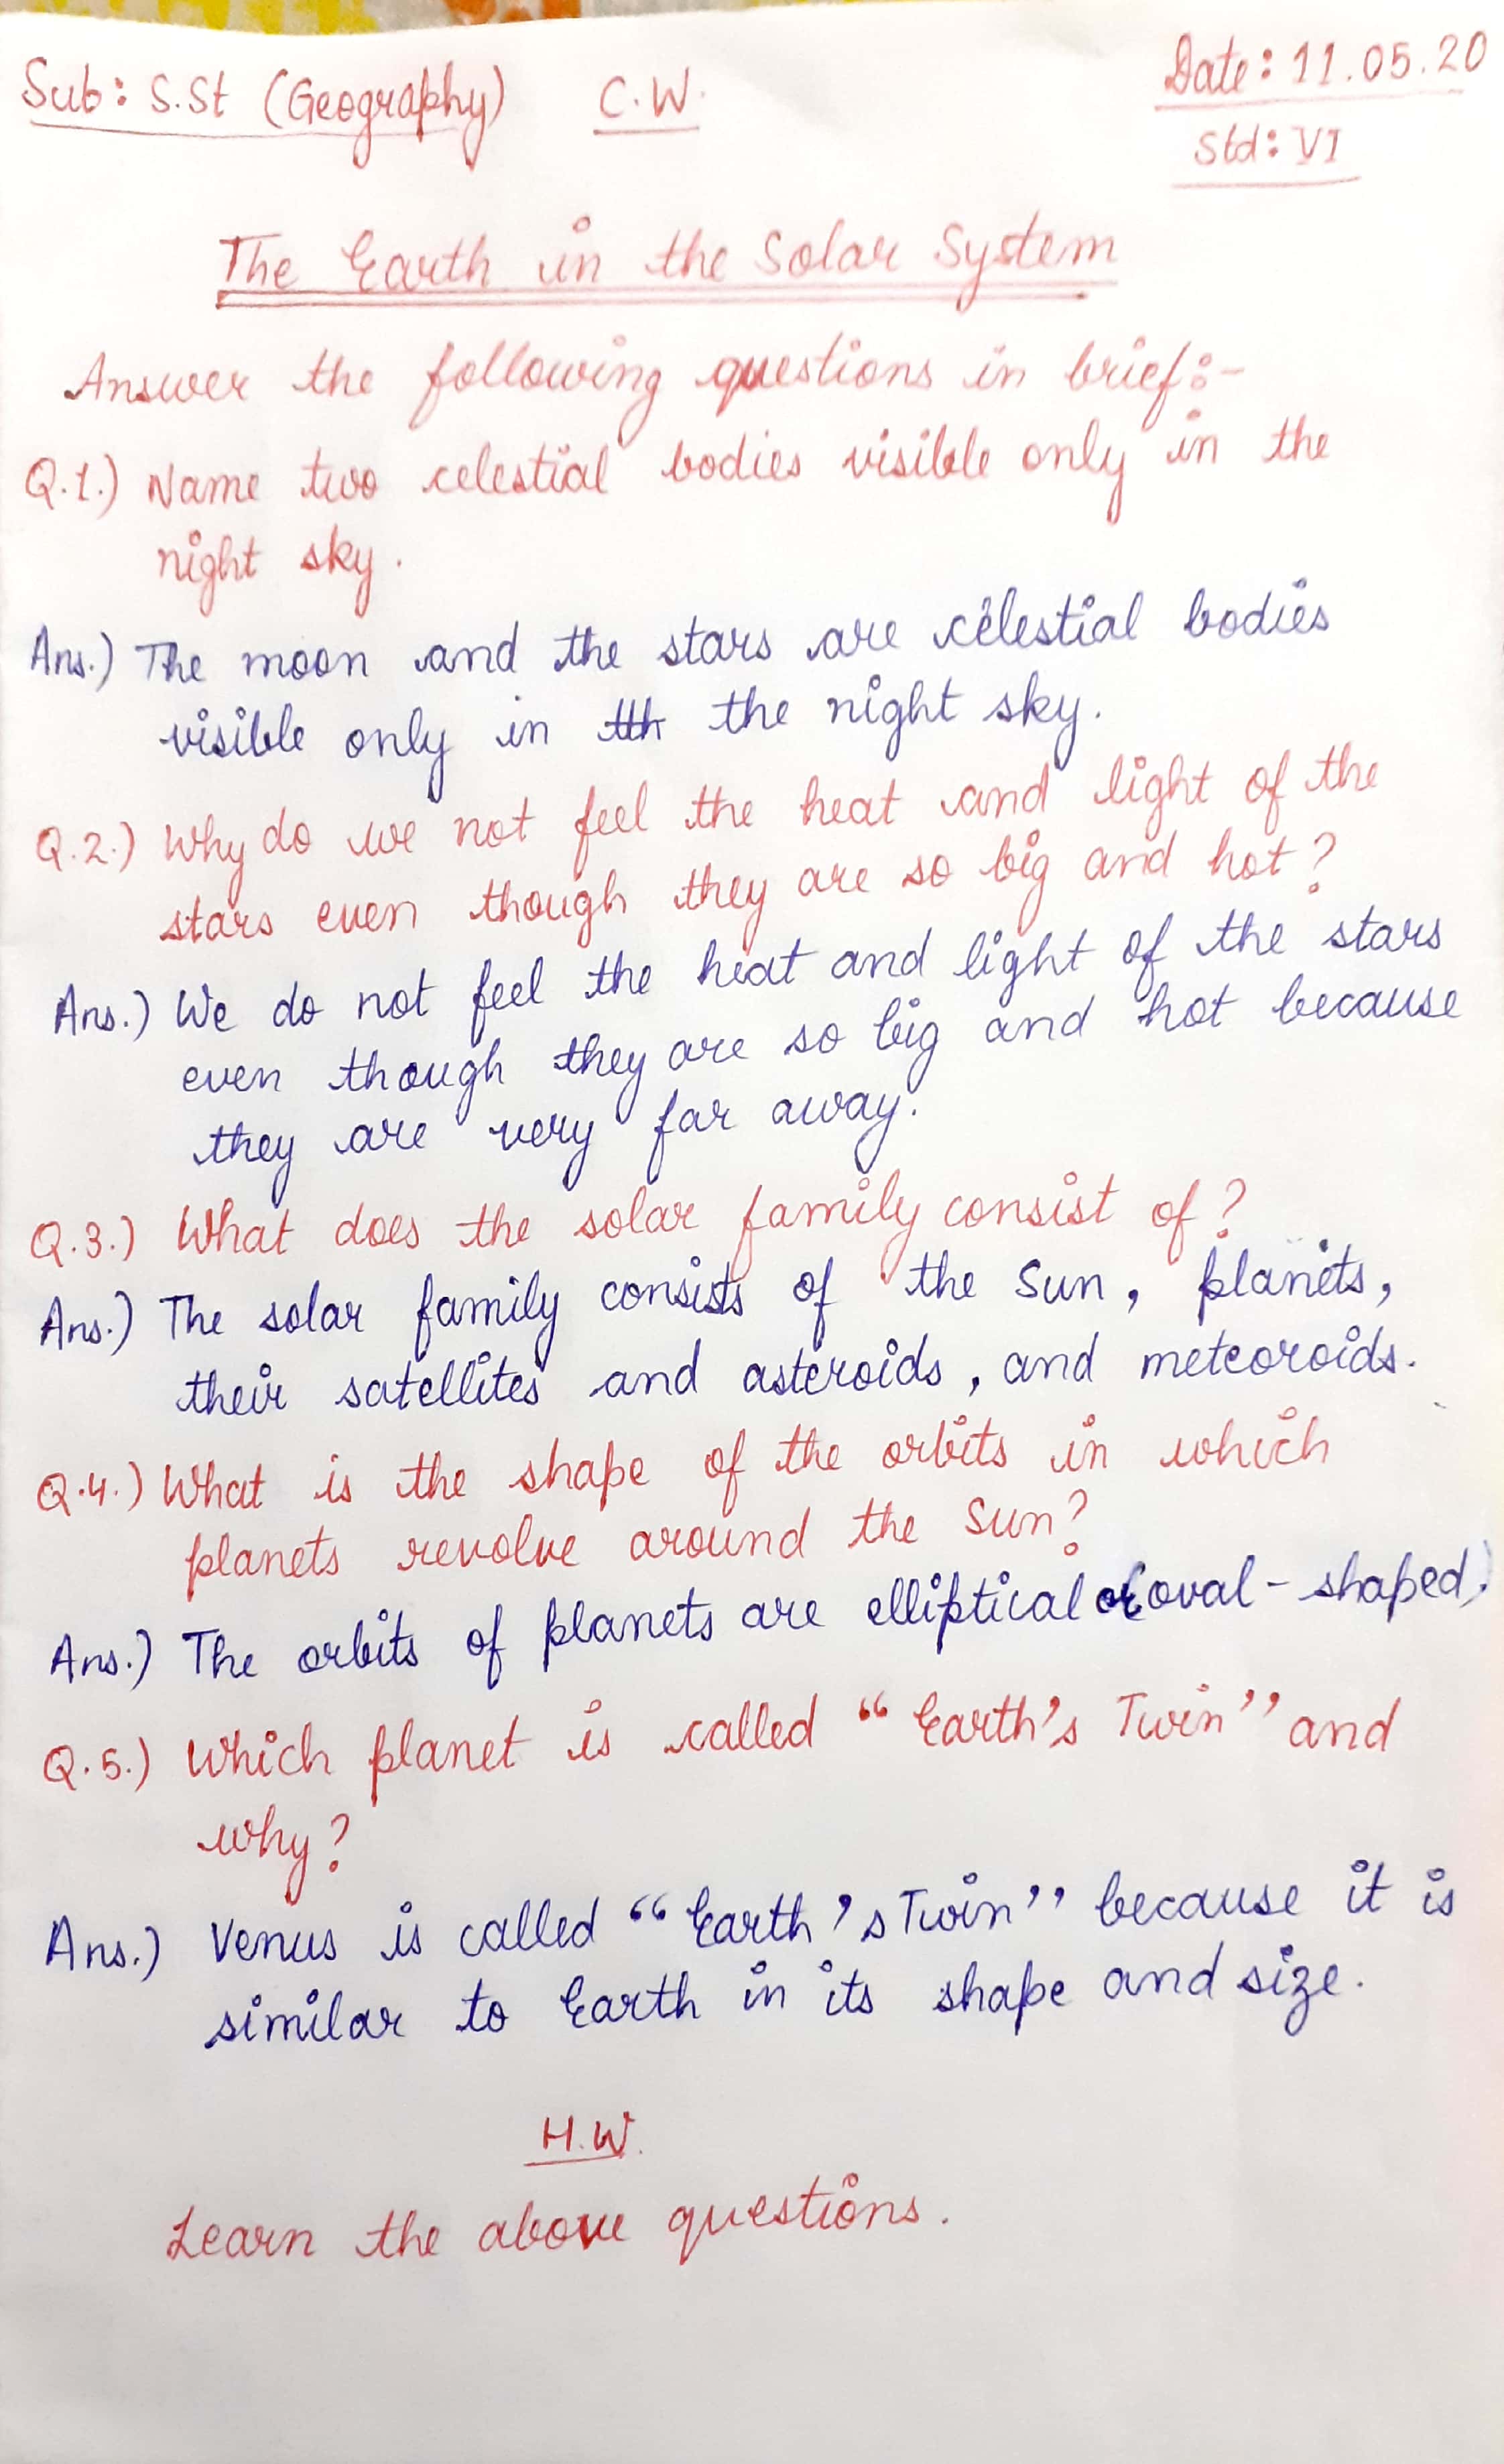 Sub: S.St (Geography) C.W. Date: 11.05.20
Std: VI
The Earth in the Solar System
Answer the following questions in brief:-
Q.1.) Name two celestial bodies visible only in the
night sky.
Ans.) The moon and the stars are celestial bodies
visible only in the night sky.
Q.2.) Why do we not feel the heat and light of the
stars even though they are so big and hot?
Ans.) We do not feel the heat and light of the stars
even though they are so big and hot because
they are very far away.
Q.3.) What does the solar family consist of?
Ans.) The solar family consists of the Sun, planets,
their satellites and asteroids, and meteoroids.
Q.4.) What is the shape of the orbits in which
planets revolve around the Sun?
Ans.) The orbits of planets are elliptical or oval-shaped.
Q.5.) Which planet is called "Earth's Twin" and
why?
Ans.) Venus is called "Earth's Twin" because it is
similar to Earth in its shape and size.
H.W.
Learn the above questions.